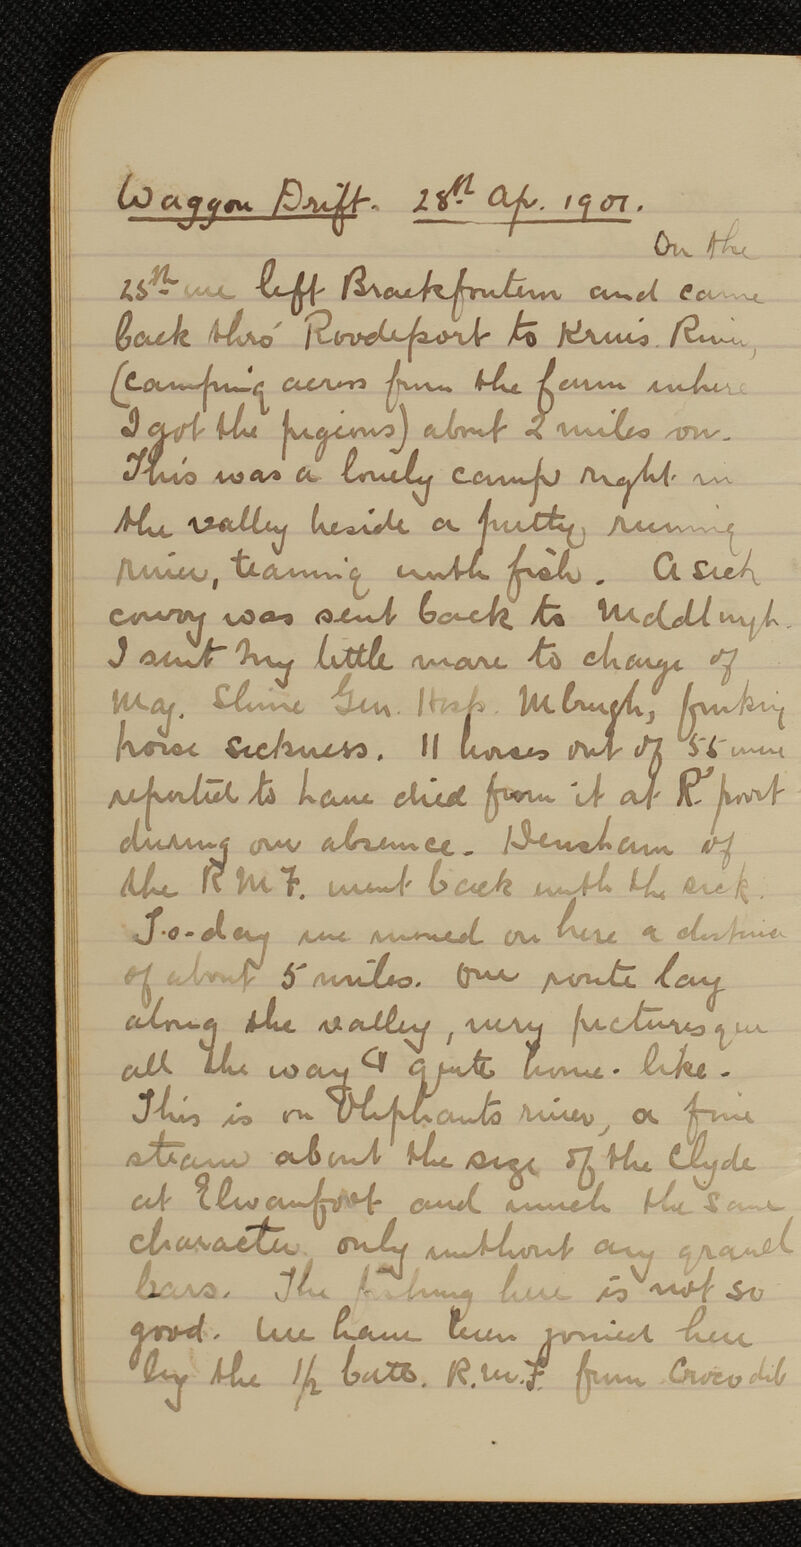 Waggon Drift. 28th Ap. 1901.
On the
25th we left Braekfontein and came
back thro' Roodeport to Kruis River,
(camping across from the farm where
I got the pigeons) about 2 miles on.
This was a lonely camp right in
the valley beside a pretty running
river, teaming with fish. A sick
convoy was sent back to
I sent my little mare to charge of
Maj. Shine Gen. Hosp. Mburgh, funking
horse sickness. 11 horses out of 55 were
reported to have died from it at R'poort
during our absence. Hensham of
the R M F. went back with the sick.
To-day we moved on here a distance
of about 5 miles. Our route lay
along the valley, very picturesque
all the way & quite home-like.
This is on Oliphants river, a fine
steam about the size of the Clyde
at Elvanfoot and much the same
character only without any gravel
bars. The fishing here is not so
good. We have been joined here
by the 1/2 batt. R.M.F. from Crocodile